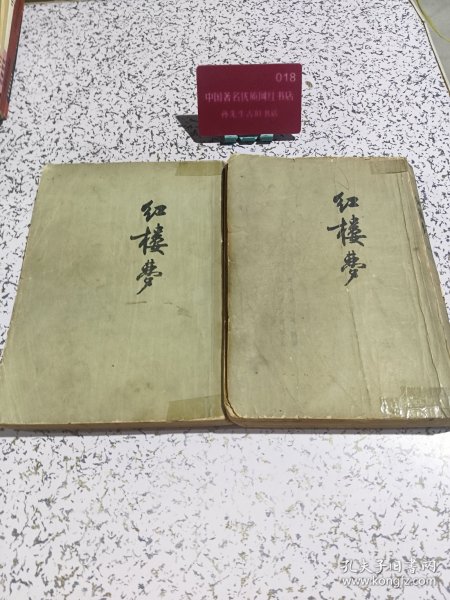 018
中国著名优质网红书店
孙先生古旧书店
红楼梦
红楼梦
孔夫子旧书网
www.kongfz.com